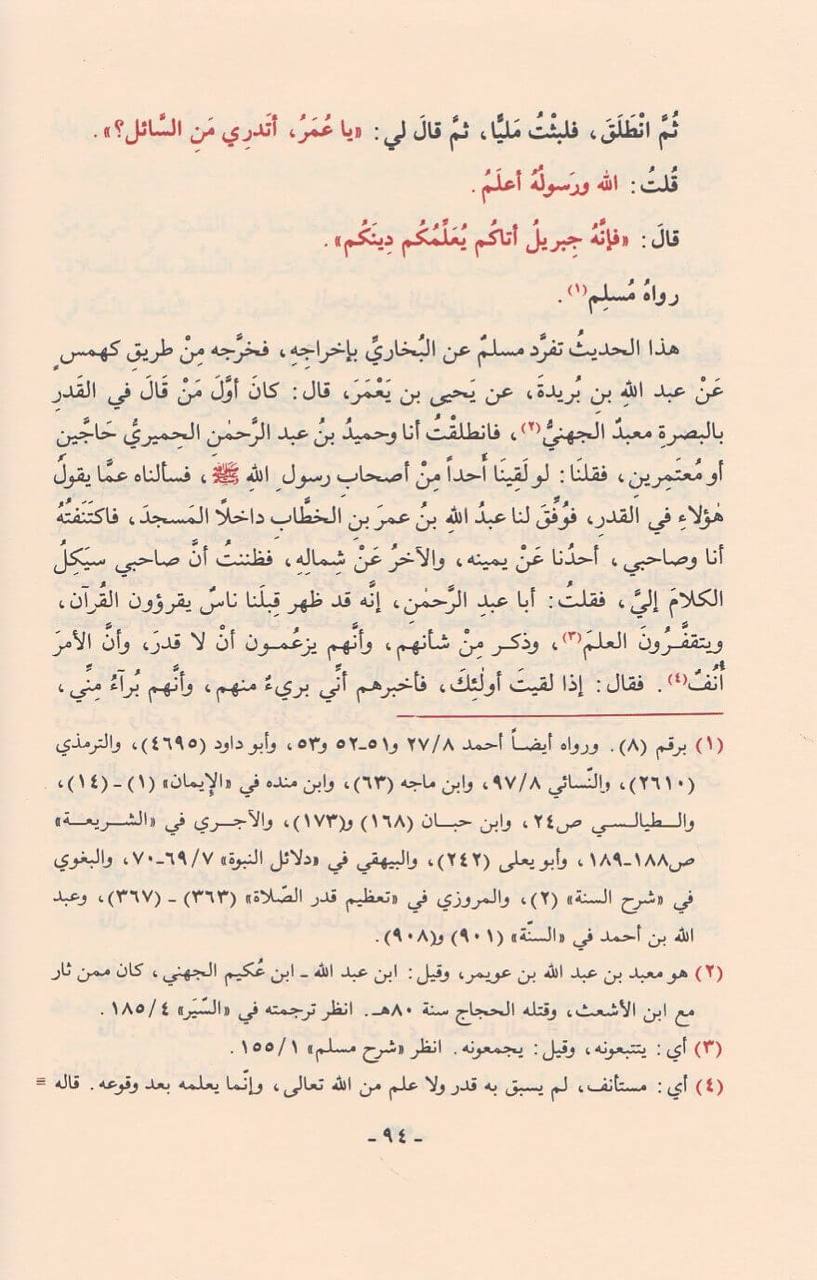 ثُمَّ انْطَلَقَ، فلبثْتُ مَليًّا، ثمَّ قالَ لي: «يا عُمَرُ، أتَدرِي مَنِ السَّائل؟».
قُلتُ: الله ورَسولُهُ أعلَمُ.
قالَ: «فإنَّهُ جِبريلُ أتاكُم يُعَلِّمُكُم دِينَكُم».
رواهُ مُسلِم(١).
هذا الحديثُ تفرَّد مسلمٌ عن البُخاريِّ بإخراجِهِ، فخرَّجه مِنْ طريقِ كهمسٍ
عَنْ عبد اللهِ بنِ بُريدةَ، عن يَحيى بن يَعْمَرَ، قال: كانَ أوَّلَ مَنْ قَالَ في القَدرِ
بالبصرةِ معبدٌ الجهنيُّ(٢)، فانطلقْتُ أنا وحميدُ بنُ عبد الرَّحمٰنِ الحِميريُّ حَاجَّينِ
أو مُعتَمِرينِ، فقلنَا: لو لَقِينَا أَحداً مِنْ أصحابِ رسولِ اللهِ ﷺ، فسألناه عمَّا يقولُ
هٰؤلاءِ في القدرِ، فوُفِّقَ لنا عبدُ اللهِ بنُ عمرَ بنِ الخطَّابِ داخلًا المَسجدَ، فاكتَنَفتُهُ
أنا وصاحبي، أحدُنا عَنْ يمينه، والآخرُ عَنْ شِمالِهِ، فظننتُ أنَّ صاحبي سيَكِلُ
الكلامَ إليَّ، فقلتُ: أبا عبدِ الرَّحمٰنِ، إنَّه قد ظهر قِبلَنا ناسٌ يقرؤون القُرآن،
ويتقفَّرُونَ العلمَ(٣)، وذكـر مِنْ شأنهم، وأنَّهم يزعُمـون أنْ لا قدرَ، وأنَّ الأمرَ
أُنُفٌ(٤). فقال: إذا لقيتَ أولٰئِكَ، فأخبرهم أنِّي بريءٌ منهم، وأنَّهم بُرآءُ مِنِّي،
(١) برقم (٨). ورواه أيضـاً أحمد ٢٧/٨ و٥١ـ٥٢ و٥٣، وأبو داود (٤٦٩٥)، والترمذي
(٢٦١٠)، والنّسائي ٩٧/٨، وابن ماجه (٦٣)، وابن منده في «الإِيمان» (١) ـ (١٤)،
والـطيالـسي ص٢٤، وابن حبـان (١٦٨) و(١٧٣)، والآجـري في «الشـريعـة»
ص١٨٨ـ١٨٩، وأبو يعلى (٢٤٢)، والبيهقي في «دلائل النبوة» ٦٩/٧ـ٧٠، والبغوي
في «شرح السنة» (٢)، والمروزي في «تعظيم قدر الصّلاة» (٣٦٣) ـ (٣٦٧)، وعبد
الله بن أحمد في «السنّة» (٩٠١) و(٩٠٨).
(٢) هو معبد بن عبد الله بن عويمر، وقيل: ابن عبد الله ـ ابن عُكيم الجهني، كان ممن ثار
مع ابن الأشعث، وقتله الحجاج سنة ٨٠هـ. انظر ترجمته في «السِّيَر» ١٨٥/٤.
(٣) أي: يتتبعونه، وقيل: يجمعونه. انظر «شرح مسلم» ١٥٥/١.
(٤) أي: مستأنف، لم يسبق به قدر ولا علم من الله تعالى، وإنّما يعلمه بعد وقوعه. قاله =
ـ ٩٤ ـ